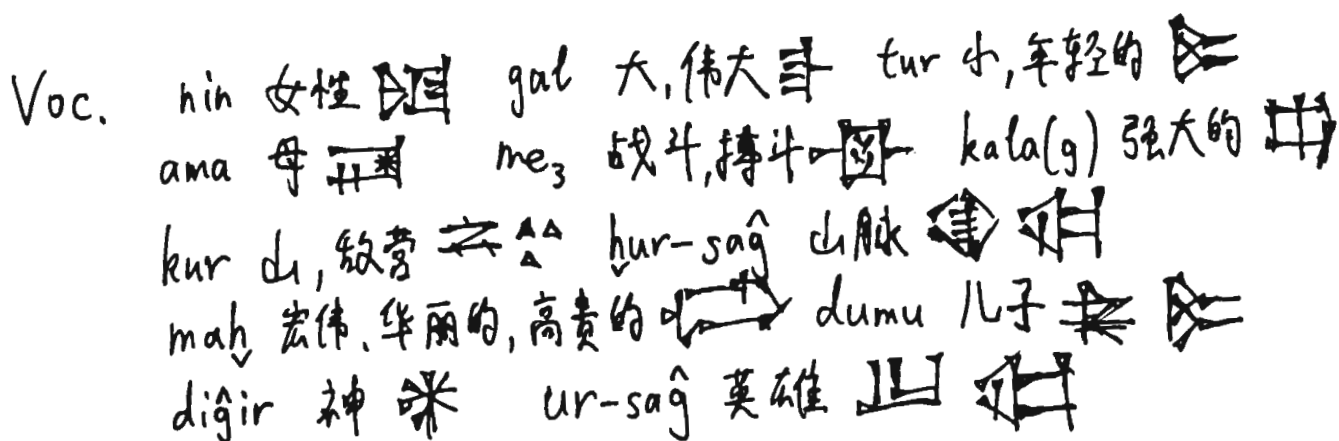 Voc. nin 女性 𒎏 gal 大,伟大 𒃲 tur 小,年轻的 𒌉
ama 母 𒂼 me₃ 战斗,搏斗 𒀞 kala(g) 强大的 𒆗
kur 山,敌营 𒆳 ḫur-saĝ 山脉 𒄯 𒊕
maḫ 宏伟、华丽的,高贵的 𒈤 dumu 儿子 𒌉
diĝir 神 𒀭 ur-saĝ 英雄 𒌨 𒊕